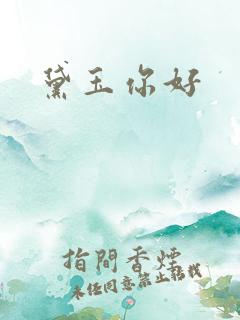 黛玉你好
指間香煙
未经同意禁止转载